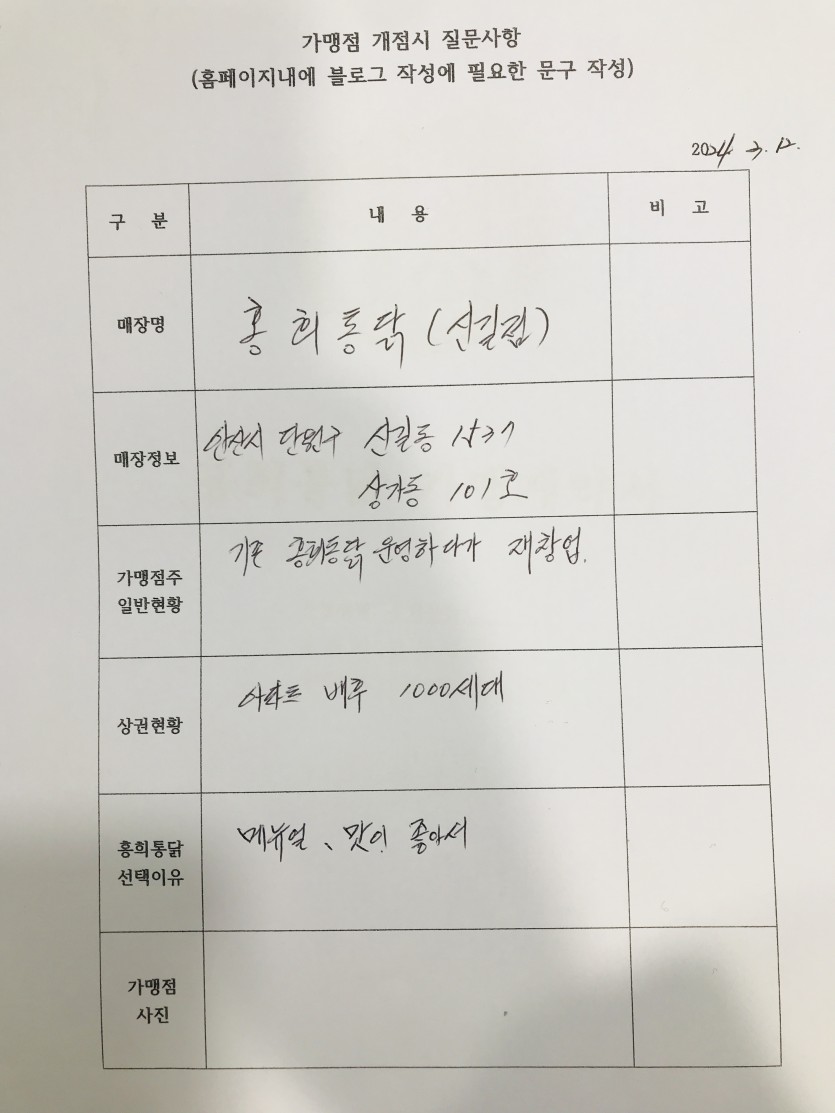 가맹점 개점시 질문사항
(홈페이지내에 블로그 작성에 필요한 문구 작성)
2024. 3. 12.
구 분 내 용 비 고
매장명 홍희통닭 (신길점)
매장정보 안산시 단원구 신길동 1537
상가동 101호
가맹점주
일반현황
기존 홍희통닭 운영하다가 재창업.
상권현황 아파트 배후 1000세대
홍희통닭
선택이유
맛이 좋아서
가맹점
사진